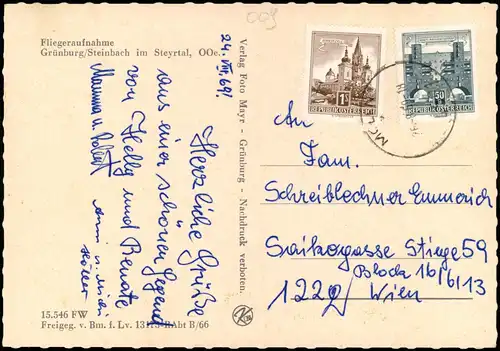 009
Fliegeraufnahme
Grünburg/Steinbach im Steyrtal, OOe.
24. VIII. 69!
Herzliche Grüße
aus einer schönen Gegend
von Helly und Renate
Mamma u.
Verlag Foto Mayr - Grünburg - Nachdruck verboten.
15.546 FW
Freigeg. v. Bm. f. Lv. RAbt B/66
1S
REPUBLIK ÖSTERREICH
1.50
REPUBLIK ÖSTERREICH
An
Fam.
Schreiblechner Emmerich
Saikogasse Stiege 59
Block 16/6/13
1222 Wien